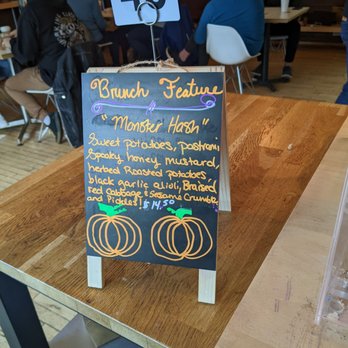 Brunch Feature
"Monster Hash"
Sweet potatoes, pastrami
Spooky honey mustard,
herbed Roasted potatoes
black garlic alioli, Braised
red Cabbage & sesame Crumble
and Pickles! $14.50